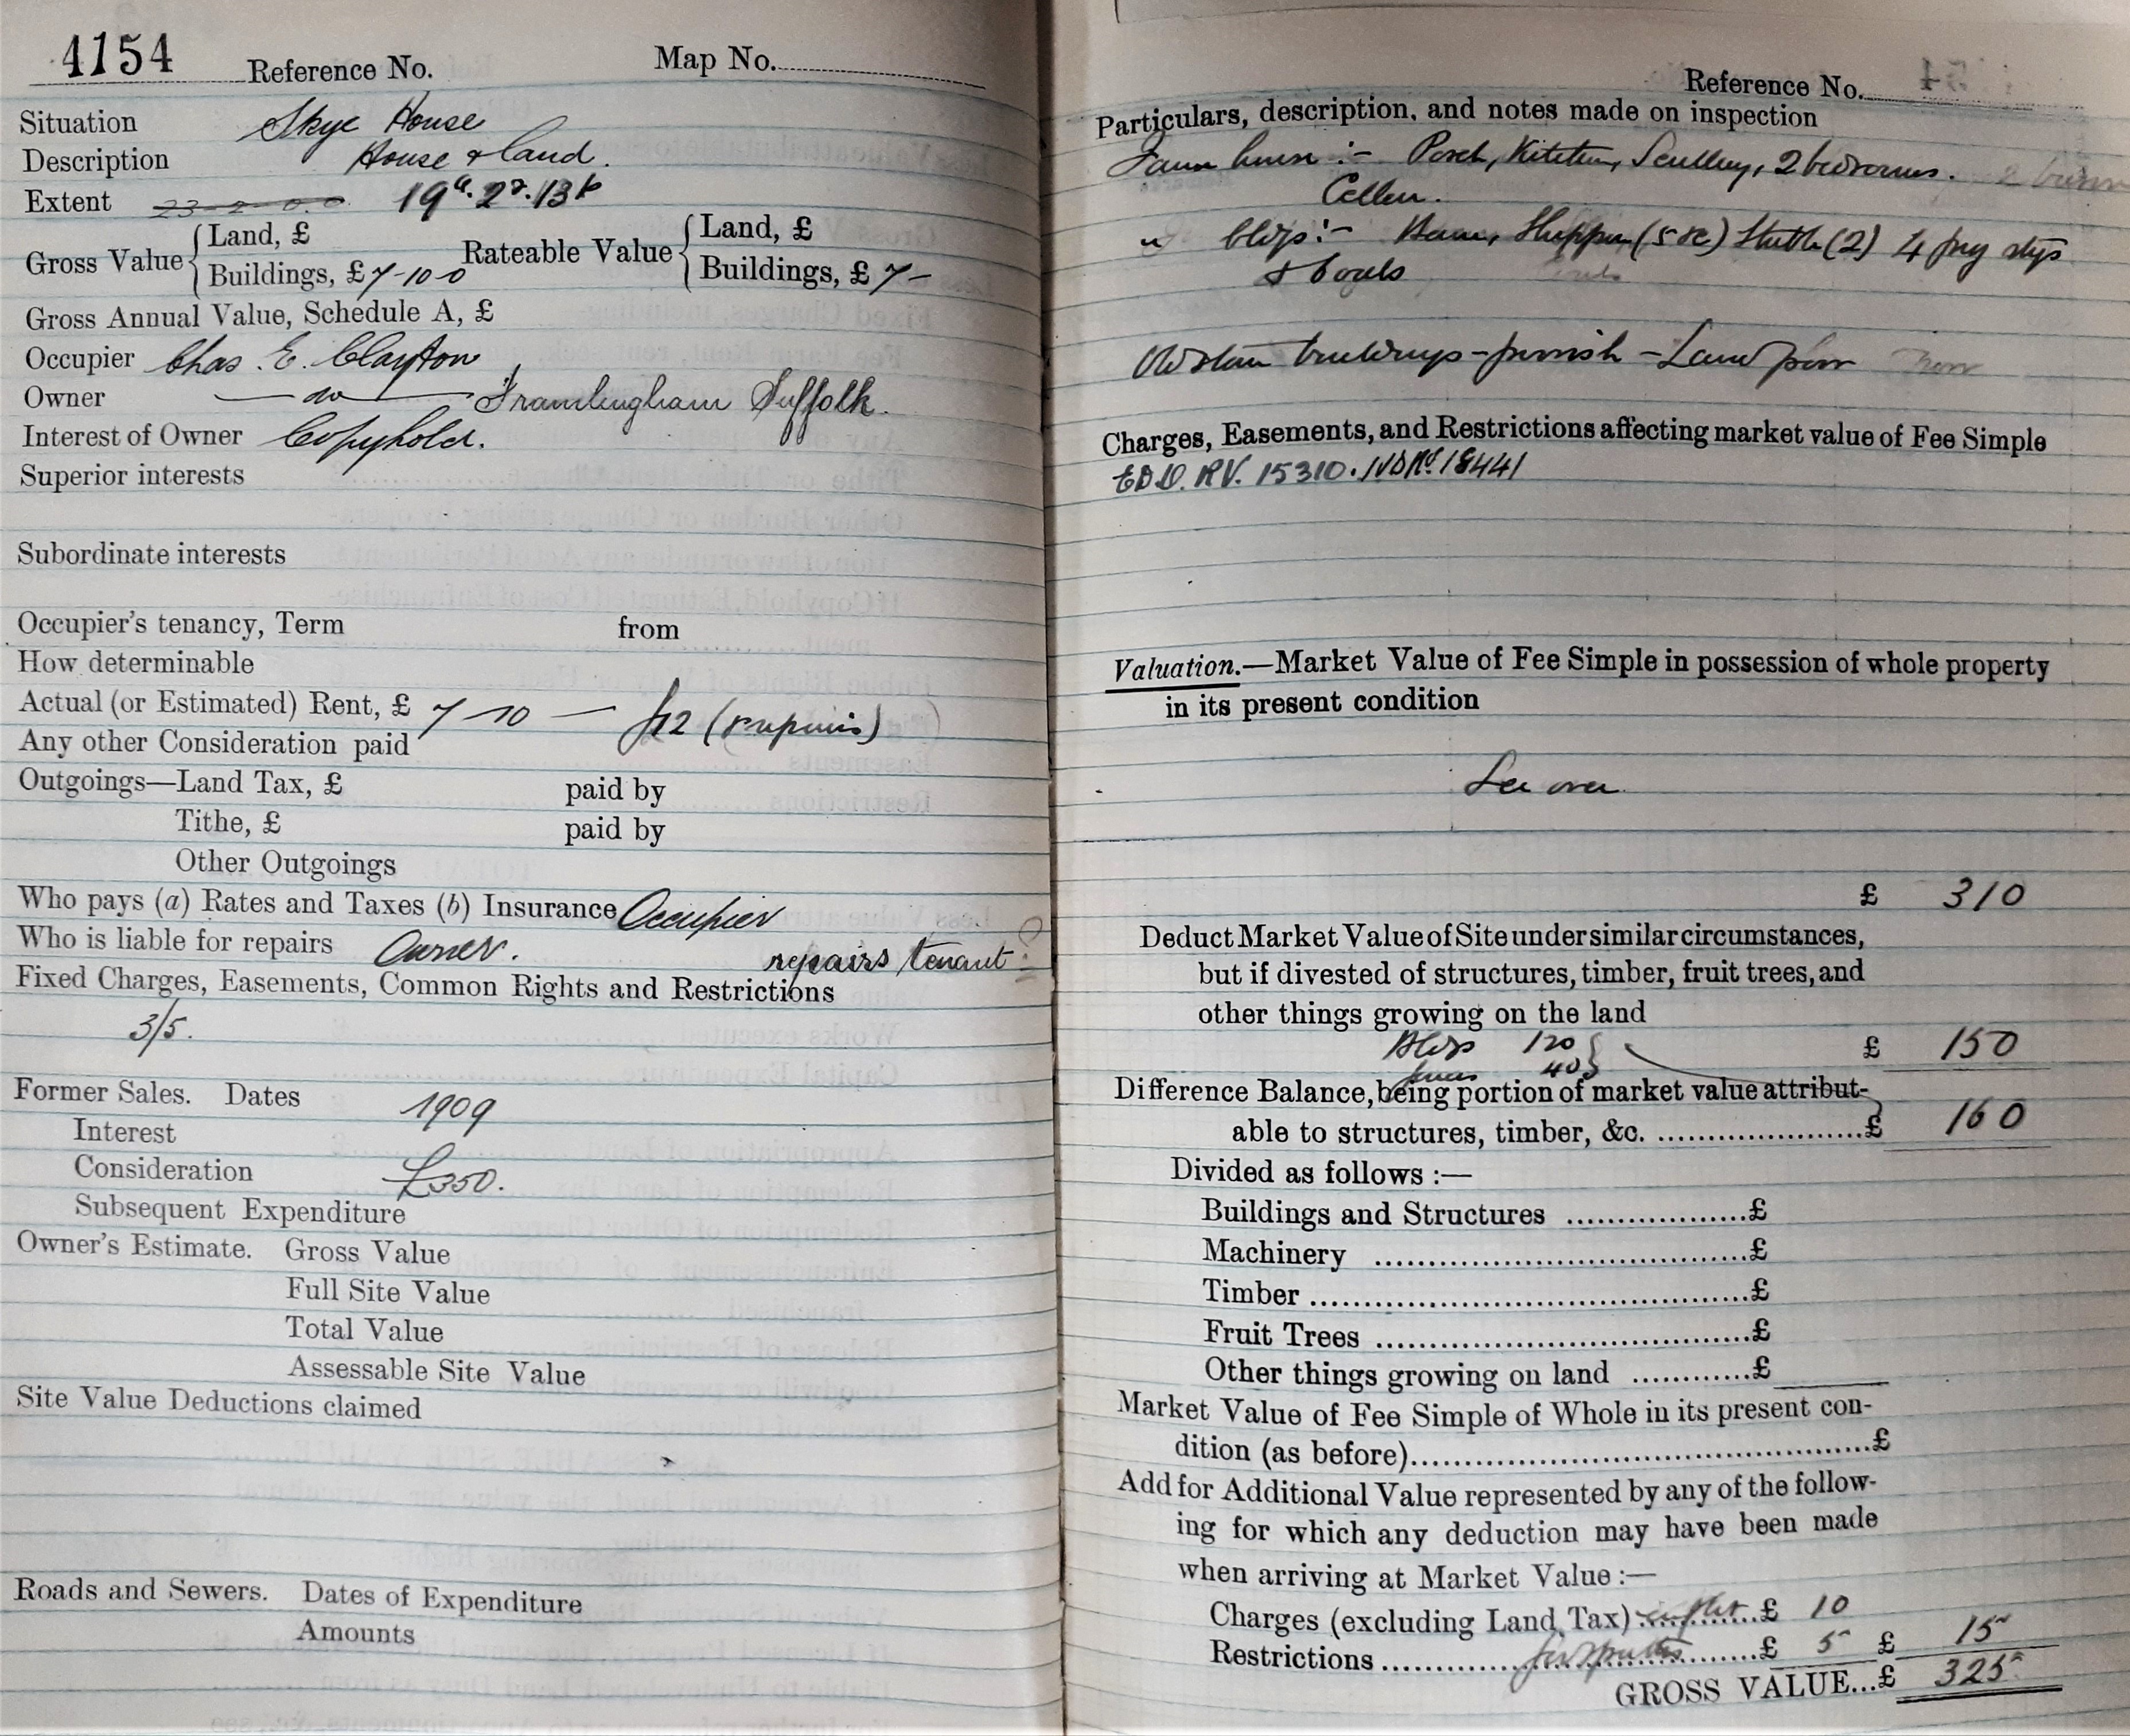 4154 Reference No. Map No.
Situation Skye House
Description House & land.
Extent 23-2-0.0 19a. 2r. 13p
Gross Value { Land, £ Rateable Value { Land, £
Buildings, £ 7-10-0 Buildings, £ 7-
Gross Annual Value, Schedule A, £
Occupier Chas. E. Clayton
Owner — do — Framlingham Suffolk.
Interest of Owner Copyhold.
Superior interests
Subordinate interests
Occupier's tenancy, Term from
How determinable
Actual (or Estimated) Rent, £ 7-10 — £12 (repairs)
Any other Consideration paid
Outgoings—Land Tax, £ paid by
Tithe, £ paid by
Other Outgoings
Who pays (a) Rates and Taxes (b) Insurance Occupier
Who is liable for repairs Owner. repairs tenant
Fixed Charges, Easements, Common Rights and Restrictions
3/5.
Former Sales. Dates 1909
Interest
Consideration £350.
Subsequent Expenditure
Owner's Estimate. Gross Value
Full Site Value
Total Value
Assessable Site Value
Site Value Deductions claimed
Roads and Sewers. Dates of Expenditure
Amounts
Reference No.
Particulars, description, and notes made on inspection
Farm house :- Porch, Kitchen, Scullery, 2 bedrooms.
Cellar.
" bldgs :- Barn, Shippon (5 ) Stable (2) 4 pig stys
&
Old stone buildings - - Land poor
Charges, Easements, and Restrictions affecting market value of Fee Simple
EDD. RV. 15310. IVD No. 18441
Valuation.—Market Value of Fee Simple in possession of whole property
in its present condition
See over
£ 310
Deduct Market Value of Site under similar circumstances,
but if divested of structures, timber, fruit trees, and
other things growing on the land
Bldgs 120
£ 150
40
Difference Balance, being portion of market value attribut-
able to structures, timber, &c. ....................£ 160
Divided as follows :—
Buildings and Structures ..................£
Machinery .....................................£
Timber ...........................................£
Fruit Trees .....................................£
Other things growing on land ............£
Market Value of Fee Simple of Whole in its present con-
dition (as before)..............................................£
Add for Additional Value represented by any of the follow-
ing for which any deduction may have been made
when arriving at Market Value :—
Charges (excluding Land Tax) ............£ 10
Restrictions ......................................£ 5 £ 15
GROSS VALUE...£ 325